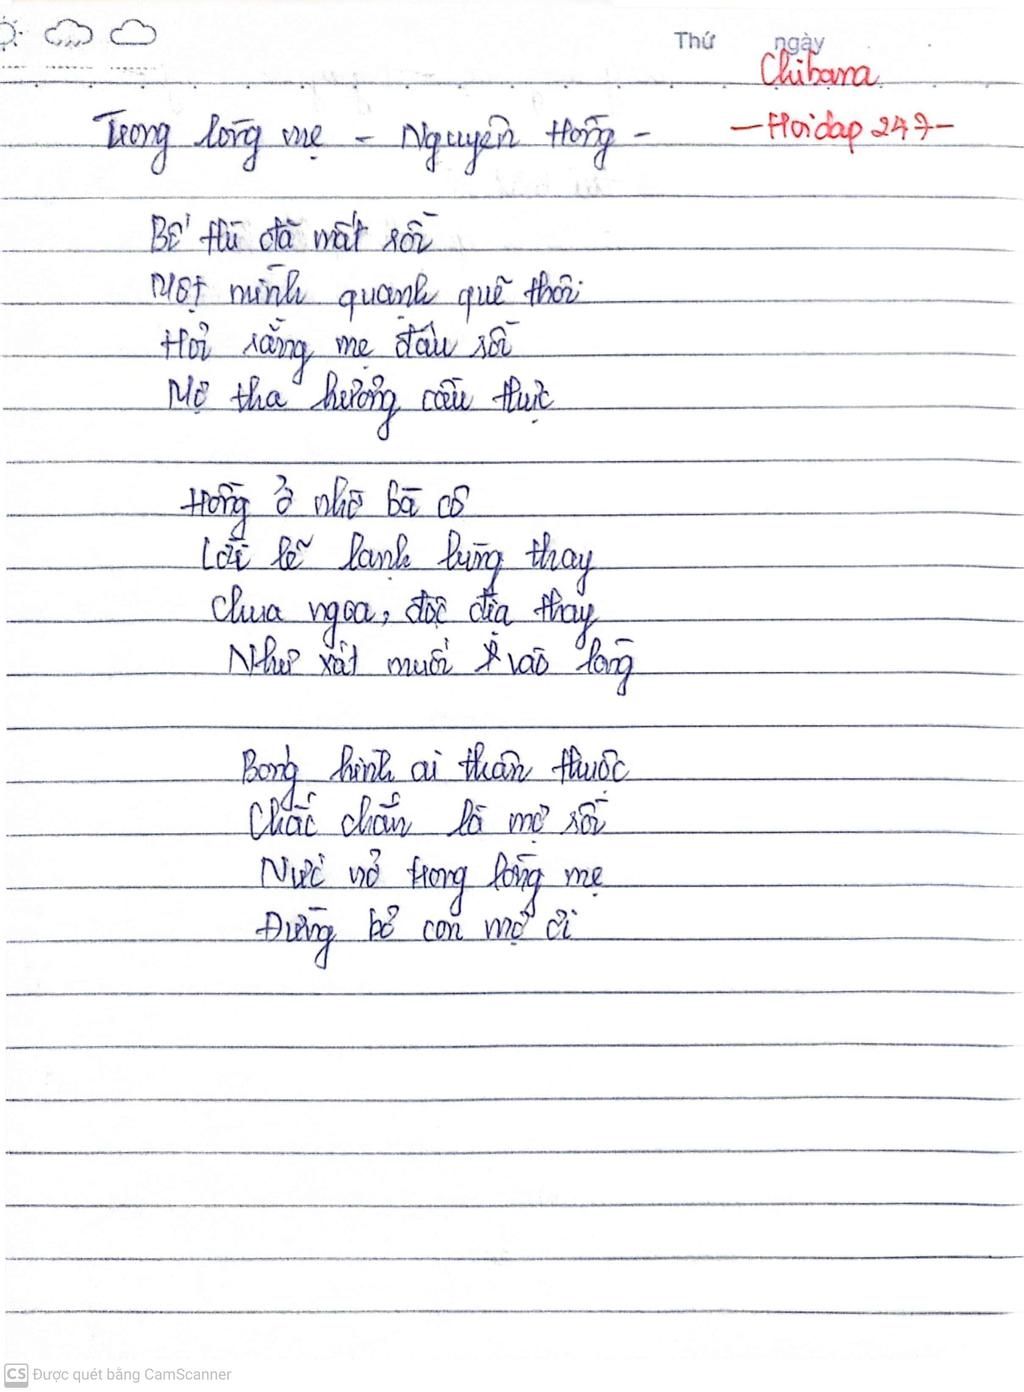 Thứ ngày
Chibana
Trong lòng mẹ - Nguyên Hồng -
-Hoidap 247-
Bố thì đã mất rồi
Một mình quanh quê thôi
Hỏi rằng mẹ đâu rồi
Mợ tha hưởng cầu thực
Hồng ở nhờ bà cô
Lời lẽ lạnh lùng thay
Chua ngoa, độc địa thay
Như xát muối vào lòng
Bóng hình ai thân thuộc
Chắc chắn là mợ rồi
Nức nở trong lòng mẹ
Đừng bỏ con mợ ơi
CS Được quét bằng CamScanner